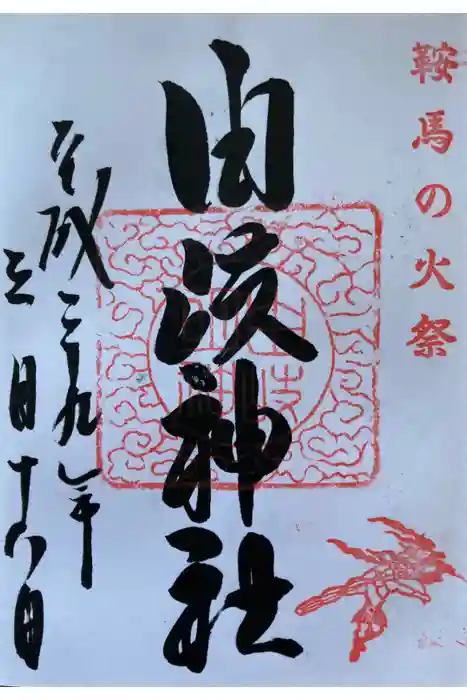 鞍馬の火祭
由岐神社
平成二九年
三月十六日